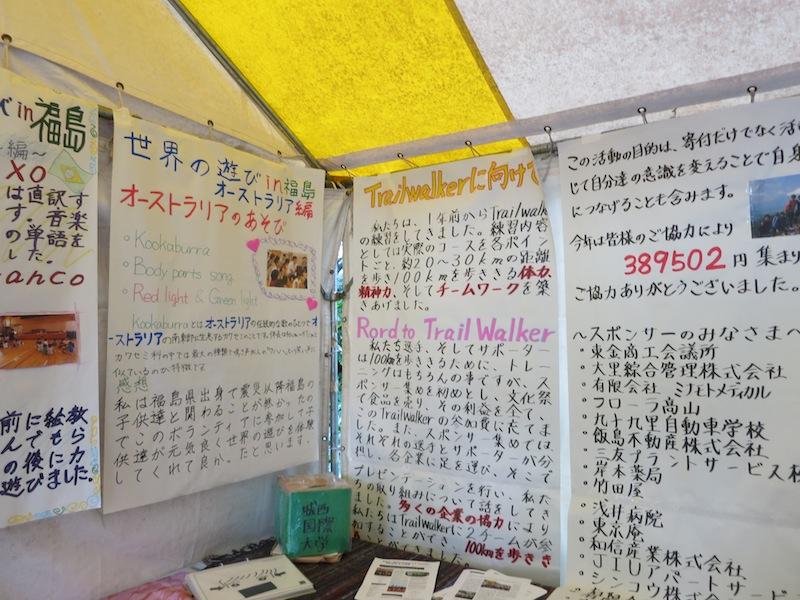 び in 福島
編～
XO
は直訳す
す。音楽
の単語を
した。
anco
前に絵も教
んで後に力
の遊びました。
世界の遊び in 福島
オーストラリア編
オーストラリアのあそび
・Kookaburra
・Body parts song
・Red light & Green light
Kookaburraとはオーストラリアの伝統的な歌のひとつでオ
ーストラリアの南東部に生息するカワセミのことです。
カワセミ科の中では最大の種類で鳴き声が人の
似ているのが特徴です。
感想
私は福島県出身で震災以降福島の
子供達と関わることが無かったの
でこのボランティアに参加して子
供達が元気良く世界の遊びを体験
してくれて良かったと思います。
城西
国際
大学
Trailwalkerに向けて
私たちは、1年前からTrailwalk
の練習をしてきました。練習内容
としては実際のコースを各ポイン
ごと、約20～30kmの距離
を歩き100kmを歩ききる体力、
精神力、そしてチームワークを築
きあげました。
Rord to Trail Walker
私たち選手、そしてサポーター
は100kmを歩ききるために、トレー
ニングはもちろんの事ですが、ス
ポンサー集めを初めとし、文化祭
で食品を売り、その利益を全て、
このTrailWalkerの参加費に充てま
した。また、スポンサー集めでは
それぞれの選手とサポーターが分
担し、各企業に足を運び、そこで
プレゼンテーションを行い、私た
ちの取り組みについて話をしてき
ました。多くの企業の協力により
私たちはTrailWalkerに2チームが参
加することができ、100kmを歩き
この活動の目的は、寄付だけでなく活
じて自分達の意識を変えることで自
につなげることも含みます。
今年は皆様のご協力により
389502円 集まり
ご協力ありがとうございました。
～スポンサーのみなさまへ
・東金商工会議所
・大里綜合管理株式会社
・有限会社 ミナモトメディカル
・フローラ高山
・九十九里自動車学校
・飯島不動産株式会社
・三友プラントサービス株
・岸本薬局
・竹田屋
・浅井病院
・東京庵
・和信産業株式会社
・JIUアパートサービ
・シンコウ株式会社